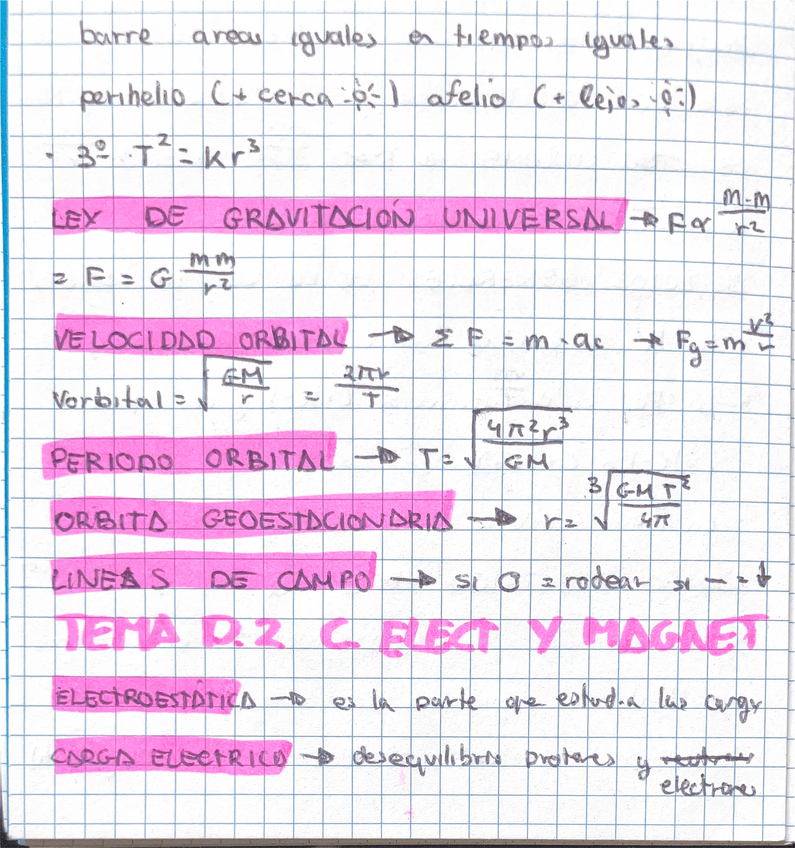 barre areas iguales en tiempos iguales
perihelio (+ cerca ☼) afelio (+ lejos ☼)
· 3º T² = k r³
LEY DE GRAVITACIÓN UNIVERSAL → F ∝ m·m/r²
= F = G mm/r²
VELOCIDAD ORBITAL → Σ F = m · ac → Fg = m v²/r
Vorbital = √(GM/r) = 2πr/T
PERIODO ORBITAL → T = √(4π²r³/GM)
ORBITA GEOESTACIONARIA → r = ³√(GMT²/4π)
LINEAS DE CAMPO → si O = rodear si — = ↓
TEMA D.2 C. ELECT Y MAGNET
ELECTROESTÁTICA → es la parte que estudia las cargs
CARGA ELECTRICA → desequilibrio protones y
electrones